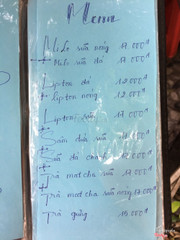 Menu
Milo sữa nóng 17.000đ
Milo sữa đá 17.000đ
Lipton đá 12.000đ
Lipton nóng 12.000đ
Lipton sữa 17.000đ
sữa 17.000đ
Sữa đá 17.000đ
Trà matcha sữa 17.000đ
Trà matcha sữa nóng 17.000đ
Trà gừng